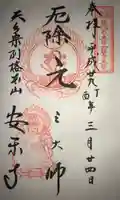 奉拝 平成廿九丁酉年 三月廿四日
厄除 元三大師
天台宗別格本山 安楽寺